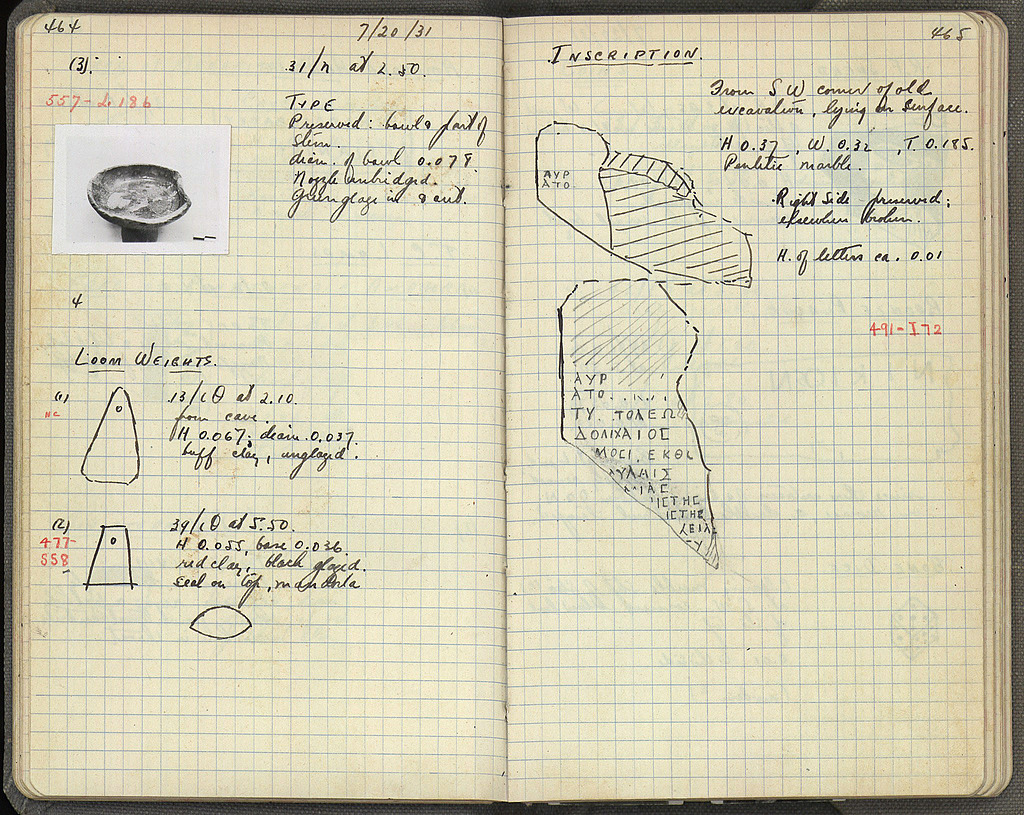 464
7/20/31
(3).
31/Π at 2.50.
557-L 186
TYPE
Preserved: bowl & part of
stem.
diam. of bowl 0.078
Nozzle unbridged.
Green glaze in & out.
4
LOOM WEIGHTS.
(1)
NC
13/ΙΘ at 2.10.
from cave.
H 0.067; diam. 0.037.
buff clay, unglazed.
(2)
477-
558
39/ΙΘ at 5.50.
H 0.055, base 0.036
red clay, black glazed.
seal on top, mandorla
465
INSCRIPTION.
From SW corner of old
excavation, lying on surface.
H 0.37, W. 0.32, T. 0.185.
Pentelic marble.
Right side preserved;
elsewhere broken.
H. of letters ca. 0.01
491-I 72
ΑΥΡ
ΑΤΟ
ΑΥΡ
ΑΤΟ
ΤΥ. ΤΟΛΕΩ
ΔΟΛΙΧΑΙΟΣ
ΜΟΣΙ. ΕΚΘ
ΥΛΑΙΣ
ΙΑΣ
ΙΣΤΗΣ
ΙΣΤΗΣ
ΛΕΙΛ